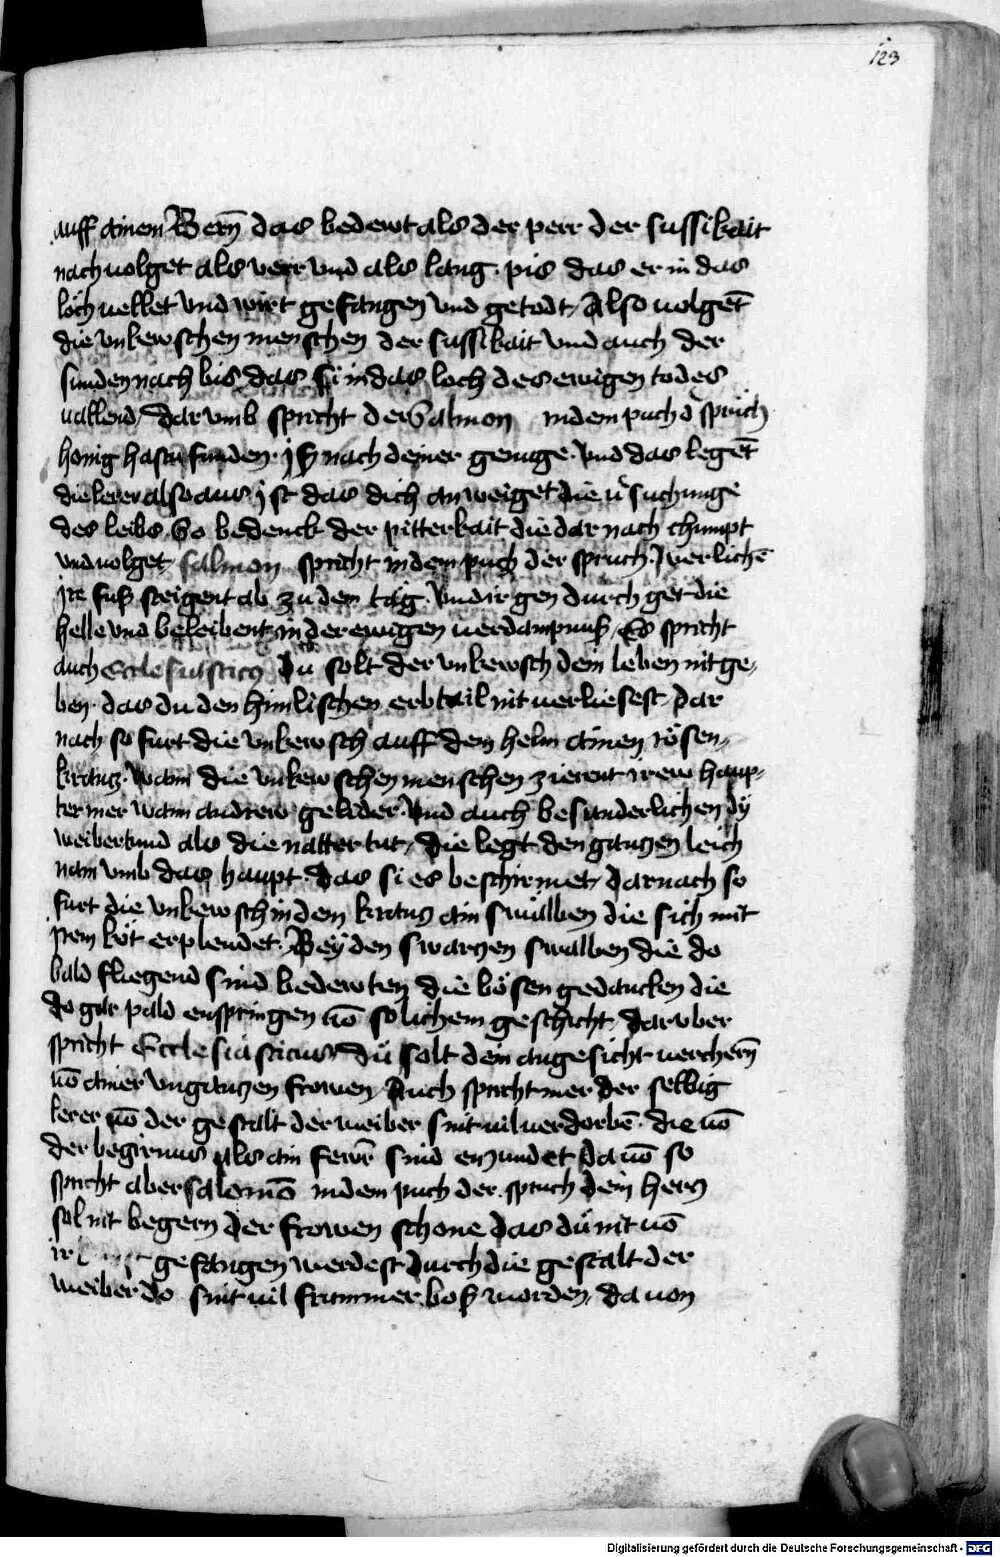 123
auff ainem Berñ das bedewt als der perr der sussikait
nach uolget als verr vnd als lang · pis das er in das
loch uellet vnd wirt gefangen vnd getodt / Also uolget
die vnkewschen menschen der sussikait vnd auch der
sunden nach bis das si in das loch des ewigen todes
uallend / Dar vmb spricht der Salmon in dem puch d sprüch
honig hastu funden · iß nach deiner genuge · vnd das legēt
die lerer also aus ist das dich an weiget die üsuchunge
des leibs · So bedenck der pitterkait die dar nach chumpt
vnd uolget salmon spricht in dem puch der spruch ·
ire fuß steigent ab zu dem tag · vnd ir gen durch get die
helle vnd beleibent in der ewigen uerdampnuß / Es spricht
auch Ecclesiasticus Du solt der vnkewsch dein leben nit ge-
ben · das du den himlischen erbtail nit uerliesest / Dar
nach so furt die vnkewsch auff dem helm ainen rösen-
krancz · wann die vnkewschen menschen zierent irew haup-
ter mer wann andrew gelider · vnd auch besunderlichen dy
weiber vnd als die natter tut / die legt den ganczen leich
nam vmb das haupt · das si es beschirmet / Darnach so
furt die vnkewsch in dem krancz ain swalben die sich mit
irem köt erplendet · Bey den swarczen swalben die do
bald fliegend sind bedewten die bösen gedancken die
do gar pald enspringen uō solichem geschicht / Daruber
spricht Ecclesiasticus Du solt dein angesicht uercherñ
uō ainer vnganczen frowen Auch spricht mer der selbig
lerer uō der gestalt der weiber sint uil uerdorbē · die uō
der begirnus als ain fewr sind enzundet Da uō so
spricht aber salomō in dem puch der spruch Dein hercz
sol nit begern der frowen schone das du nit uō
ir gefangen werdest durch die gestalt der
weiber do sint uil frummer boß worden / da uon
Digitalisierung gefördert durch die Deutsche Forschungsgemeinschaft - DFG